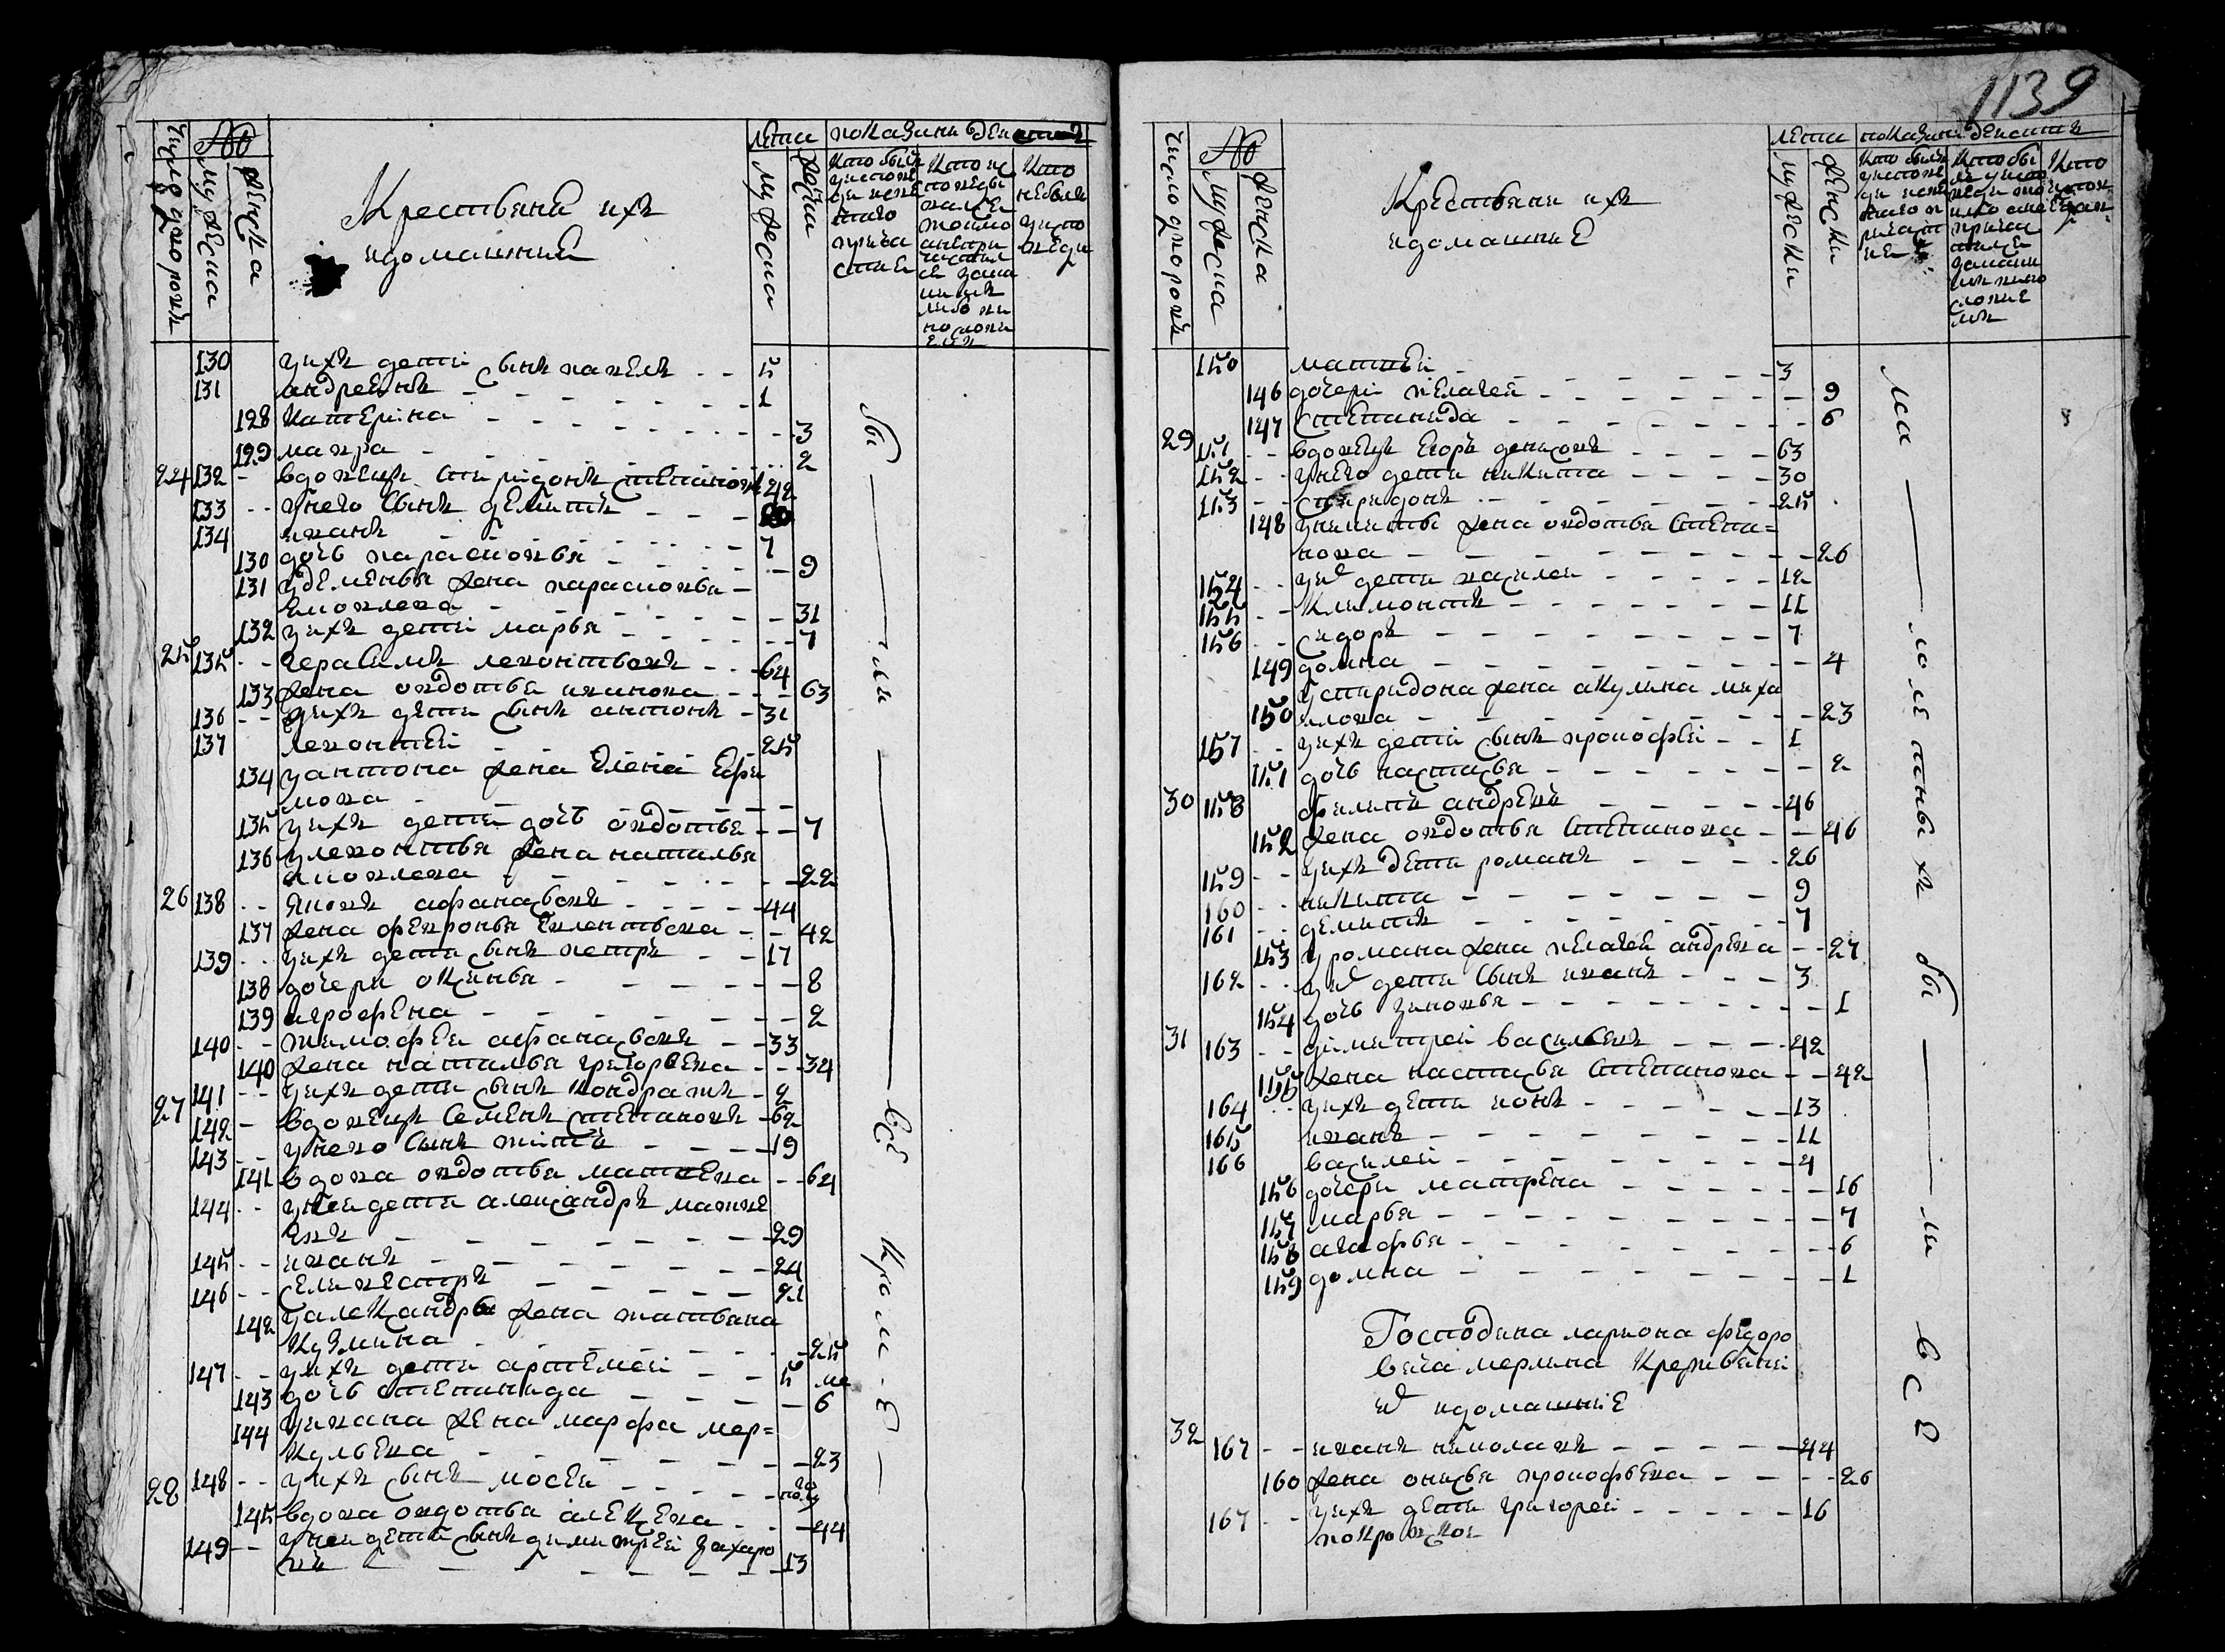 1139
Число дворовъ
№
мужеска
женска
Крестьяне ихъ
и домашние
лета
мужеска
женски
показание действ
130 у ихъ дети сынъ павелъ - - 5
131 андреянъ - - 1
128 катерина - - 3
129 мавра - - 2
24 132 - вдовецъ спиридонъ степановъ 42
133 - - у него сынъ дементъ - - 30
134 иванъ - - 7
130 дочь парасковья - - 9
131 у дементья жена парасковья
яковлева - - 31
132 у ихъ дети марья - - 7
25 135 - - герасимъ леонтьевъ - - 64
133 жена овдотья иванова - - 63
136 - - у ихъ дети сынъ антонъ - 31
137 леонтей - - 25
134 у антона жена елена ефи
мова - -
135 у ихъ дети дочь овдотья - - 7
136 у леонтья жена наталья
яковлева - - 22
26 138 - - яковъ афанасьевъ - - 44
137 жена февронья - - 42
139 - - у ихъ дети сынъ петръ - - 17
138 дочери оксинья - - 8
139 агрофена - - 2
140 - - тимофеи афанасьевъ - - 33
140 жена наталья григорьева - - 34
141 - - у ихъ дети сынъ кондратъ - 2
27 142 - вдовецъ семенъ степановъ - 62
143 - - у него сынъ титъ - - 19
141 вдова овдотья матвеева - - 64
144 - - у неи дети александръ матве
евъ - - 29
145 - - иванъ - - 24
146 - - селивестръ - - 21
142 у александра жена татьяна
кузмина - - 25
147 - - у ихъ дети артемеи - - 5 ме
143 дочь степанида - - 6
144 у ивана жена марфа мер=
кульева - - 23
148 - - у ихъ сынъ мосеи - - полу
28 145 вдова овдотья алексеева - - 44
149 - - у неи дети сынъ димитреи захаро
въ - - 13
бы - ли - все кроме -
Число дворовъ
№
мужеска
женска
Крестьяне ихъ
и домашние
лета
мужески
женски
показание действ
150 матвеи - - 3
146 дочери пелагея - - 9
147 степанида - - 6
29 151 - - вдовецъ егоръ денисовъ - - 63
152 - - у него дети никита - - 30
153 - - спиридонъ - - 25
148 у никиты жена овдотья степа=
нова - - 26
154 - - у ихъ дети василеи - - 12
155 - - климонтъ - - 11
156 - - сидоръ - - 7
149 домна - - 4
у спиридона жена акулина миха
150 илова - - 23
157 - - у ихъ дети сынъ прокофеи - - 1
151 дочь настасья - - 2
30 158 филипъ андреевъ - - 46
152 жена овдотья степанова - - 46
159 - - у ихъ дети романъ - - 26
160 - - никита - - 9
161 - - дементъ - - 7
153 у романа жена пелагея андреева - - 27
162 - - у ихъ дети сынъ иванъ - - 3
154 дочь зиновья - - 1
31 163 - - димитреи васильевъ - - 42
155 жена настасья степанова - - 42
164 - - у ихъ дети ионъ - - 13
165 иванъ - - 11
166 василеи - - 4
156 дочери матрена - - 16
157 марья - - 7
158 агафья - - 6
159 домна - - 1
Господина лариона федоро
веча мерлина крестьяне
и домашние
32 167 - - иванъ николаевъ - - 44
160 жена онисья прокофьева - - 26
167 - - у ихъ дети григореи - - 16
покровское
ма - лолетныхъ бы - ли все